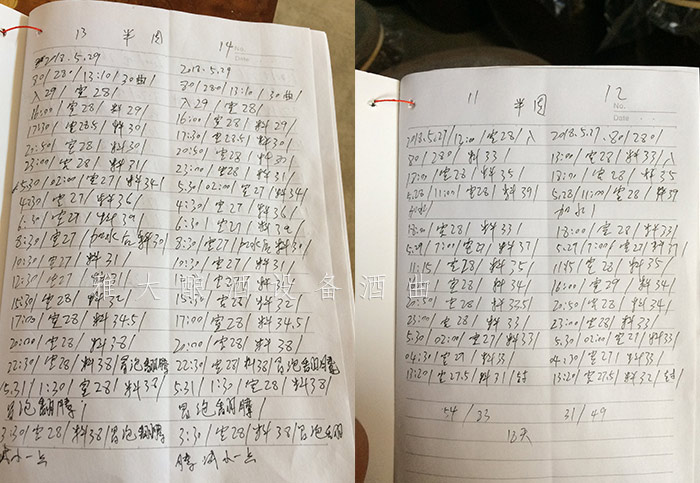 13 半肉 14
No.
Date
2018.5.29
30/28/13:10/30曲/
入29/室28/
16:00/室28/料29/
17:30/室285/料30/
20:50/室28/料30/
23:00/室28/料31/
5.30/02:00/室27/料34/
4:30/室27/料36/
6:30/室27/料39/
8:30/室27/加水后料30/
10:30/室27/料31/
12:30/室27/料31/
15:30/室28/料32/
17:00/室28/料34.5/
20:00/室28/料38/
22:30/室28/料38/冒泡翻腾
5.31/1:30/室28/料38/
冒泡翻腾/
3:30/室28/料38/冒泡翻腾
减小一点
2018.5.29
30/280/13:10/30曲/
入29/室28/
16:00/室28/料29/
17:30/室285/料30/
20:50/室28/料30
23:00/室28/料31/
5.30/02:00/室27/料34/
4:30/室27/料36/
6:30/室27/料39/
8:30/室27/加水后料30/
10:30/室27/料31/
室27/料31/
15:30/室28/料32/
17:00/室28/料34.5/
20:00/室28/料38/
22:30/室28/料38/冒泡翻腾
5.31/1:30/室28/料38/
冒泡翻腾/
3:30/室28/料38/冒泡翻
腾减小一点
11 半肉 12
No.
Date
2018.5.27/12:00/室28/入
30/280/料33/
18:00/室28/料35/
5.28/11:00/室28/料39/
加水/
18:00/室28/料33/
5.29/7:00/室27/料37/
11:15/室28/料35/
室29/料34/
20:50/室28/料335/
23:00/室28/料33/
5.30/02:00/室27/料33/
04:30/室27/料33/
13:20/室27.5/料31/封
54/33
2018.5.27.30/280/
13:00/室28/料33/入
18:00/室28/料35/
5.28/11:00/室28/料39
加水/
18:00/室28/料33/
5.29/7:00/室27/料37/
11:15/室28/料35/
16:00/室29/料34/
20:50/室28/料34/
23:00/室28/料33/
5.30/02:00/室27/料33/
04:30/室27/料33/
13:20/室27.5/料32/封/
31/49
12天
雅大酿酒设备酒曲